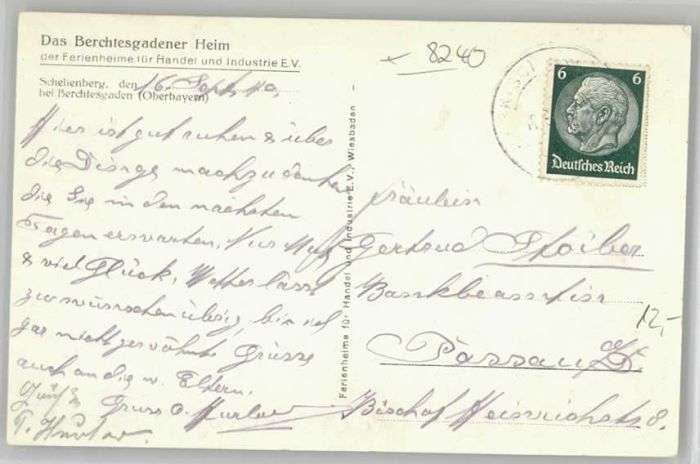 Das Berchtesgadener Heim
der Ferienheime für Handel und Industrie E.V.
Schellenberg, den 16. Sept. 40.
bei Berchtesgaden (Oberbayern)
Hier ist gut ruhen & über
die Dinge nachzudenken
die Sie in den nächsten
Tagen erwarten. Nur Mut
& viel Glück. Wetter lässt
zu wünschen übrig, bin ich
gar nicht gewöhnt. Grüsse
auch an die w. Eltern.
Gruss
8240
6 6
Deutsches Reich
Ferienheime für Handel und Industrie E.V., Wiesbaden
Fräulein
Gertrud Stoiber
Bankbeamtin
12,-
Passau
Bischof Heinrichstr. 8.